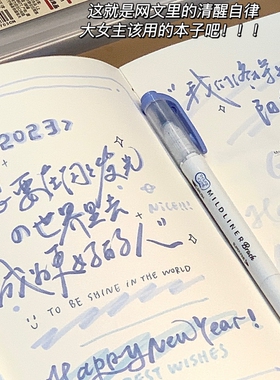 这就是网文里的清醒自律
大女主该用的本子吧！！！
<2023>
要在闪闪发光
の世界里去
成为更好的人”
NICE!!!
TO BE SHINE IN THE WORLD
Happy New Year!
BEST WISHES
“我们
MILDLINER Brush